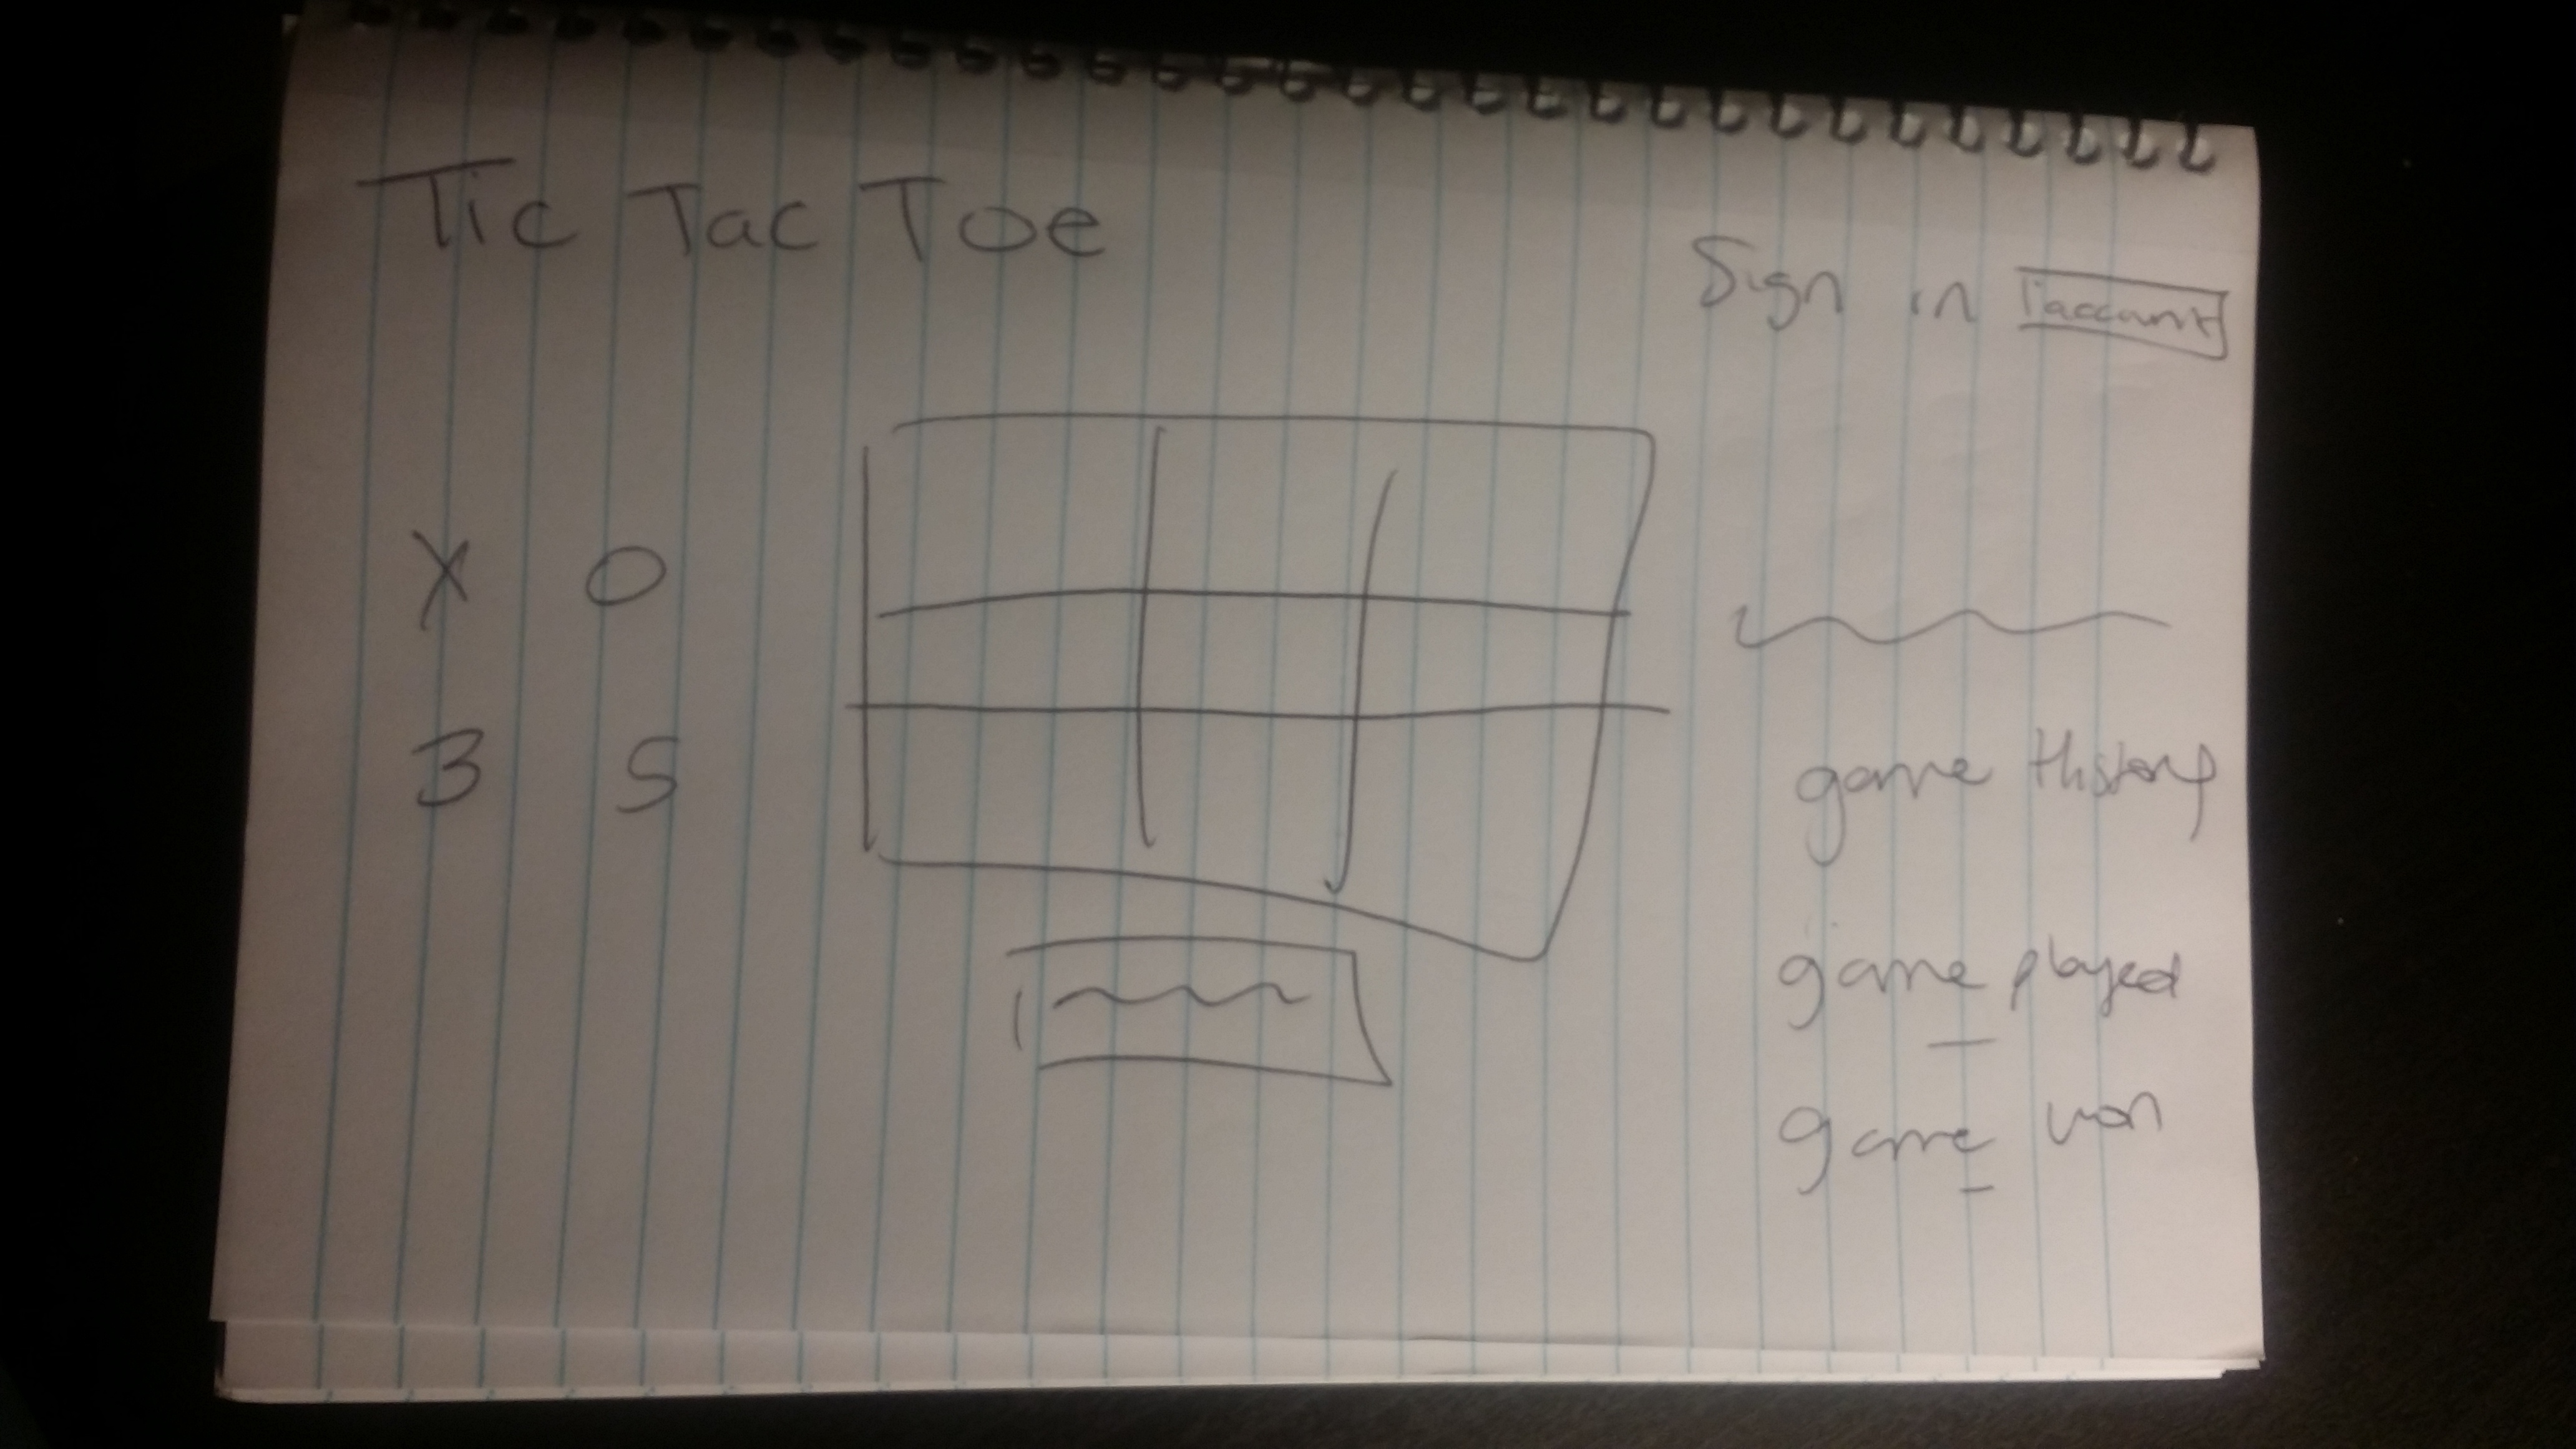 Tic Tac Toe
Sign in account
X O
3 5
game History
game played
game won